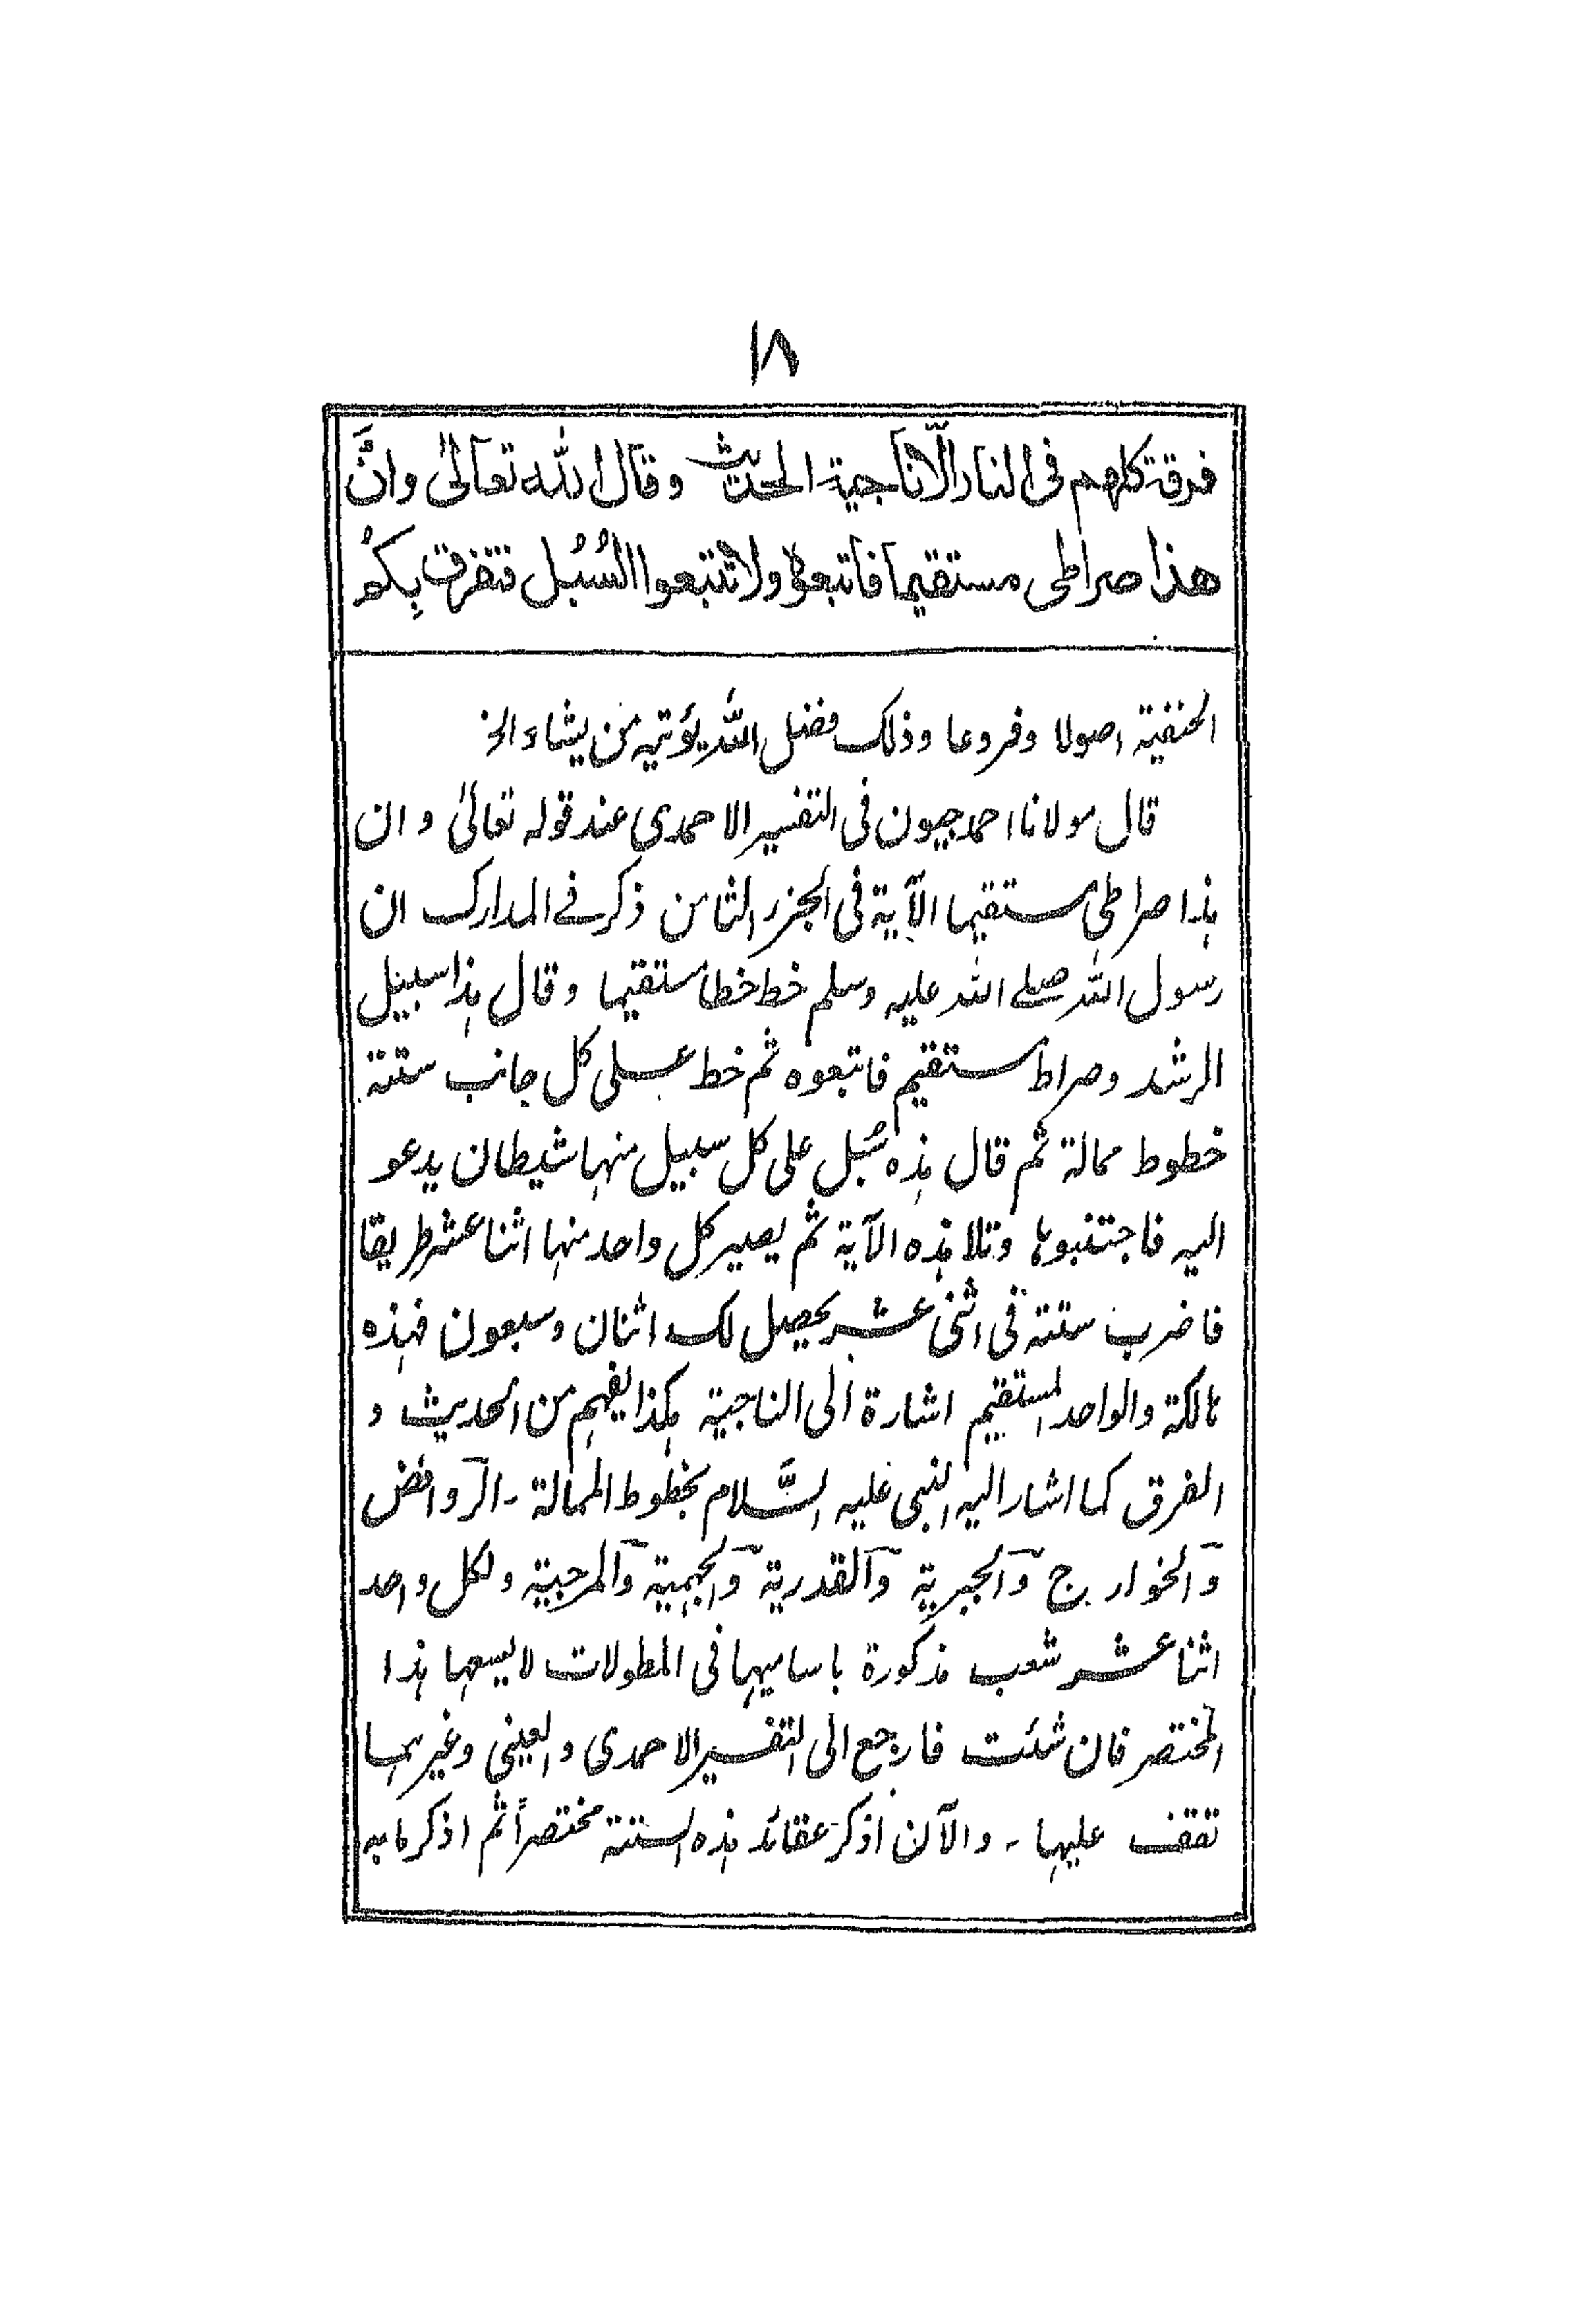 ١٨
فرقة كلهم فى النار الّا ناجية الحديث وقال الله تعالىٰ وانَّ
هذا صراطى مستقيما فاتبعوه ولا تتبعوا السُبُل فتفرق بِكمُ
الحنفية اصولا وفروعا وذلك فضل الله يؤتيه من يشاء الخ
قال مولانا احمد جيون فى التفسير الاحمدي عند قوله تعالىٰ و ان
هذا صراطي مستقيما الآية فى الجزء الثامن ذكر في المدارك ان
رسول الله صلے الله عليه وسلم خط خطا مستقيما وقال هذا سبيل
الرشد وصراط مستقيم فاتبعوه ثم خط على كل جانب ستة
خطوط ممالة ثم قال هذه سُبُل على كل سبيل منها شيطان يدعو
اليه فاجتنبوها وتلا هذه الآية ثم يصير كل واحد منها اثنا عشر طريقا
فاضرب ستة فى اثنى عشر يحصل لك اثنان وسبعون فهذه
هالكة والواحد المستقيم اشارة الى الناجية هكذا يفهم من الحديث و
الفرق كما اشار اليه النبى عليه السَّلام بخطوط الممالة ۔ الروافض
والخوارج والجبرية والقدرية والجهمية والمرجية ولكل واحد
اثنا عشر شعب مذكورة باساميها فى المطولات لا يسعها هذا
المختصر فان شئت فارجع الى التفسير الاحمدى والعينى وغيرهما
تقف عليها ۔ والآن اذكر عقائد هذه الستة مختصراً ثم اذكر ما به